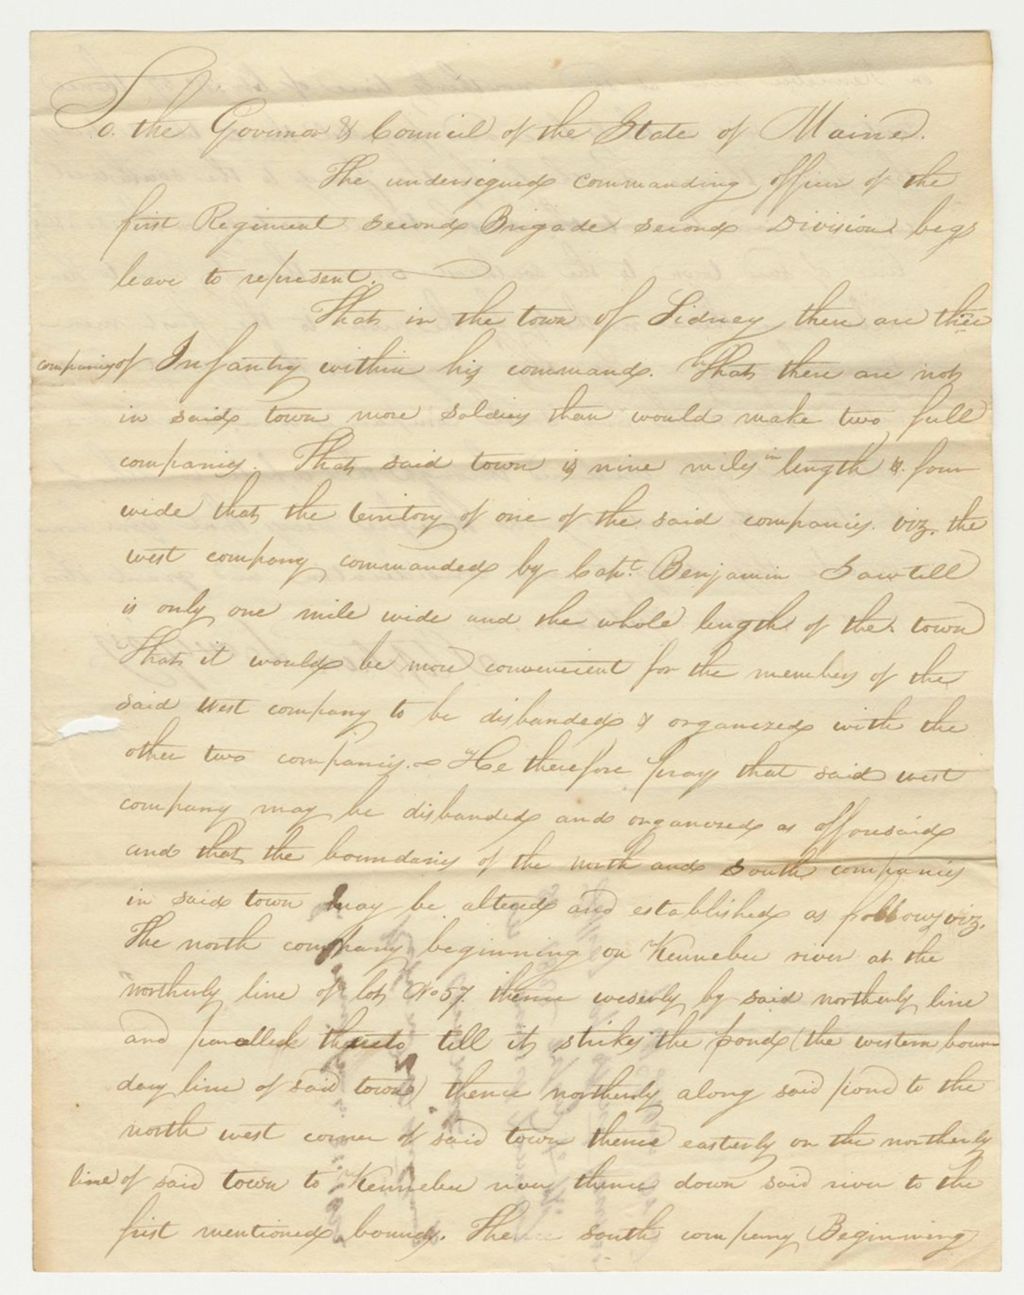 To. the Govirnor & Council of the State of Maine.
The undersigned commanding officer of the
first Regiment Second Brigade Second Division begs
leave to represent.
That in the town of Sidney there are three
companies of Infantry within his command. That there are not
in said town more soldiers than would make two full
companies. That said town is nine miles in length & four
wide that the territory of one of the said companies. viz. the
west company commanded by Capt. Benjamin Sawtell
is only one mile wide and the whole length of the town
That it would be more convenient for the members of the
said west company to be disbanded & organized with the
other two companies. He therefore pray that said west
company may be disbanded and organized as afforesaid
and that the boundaries of the north and South companies
in said town may be altered and established as follows viz.
The north company beginning on Kennebec river at the
northerly line of lot No 57. thence weserly by said northerly line
and parallell thereto till it strikes the pond (the western boun
dary line of said town) thence northerly along said pond to the
north west corner of said town thence easterly on the northerly
line of said town to Kennebec river thence down said river to the
first mentioned bounds. The south company Beginning